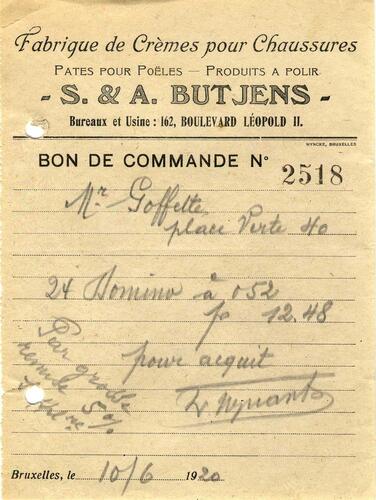 Fabrique de Crèmes pour Chaussures
PATES POUR POËLES — PRODUITS A POLIR
- S. & A. BUTJENS -
Bureaux et Usine : 162, BOULEVARD LÉOPOLD II.
NYNCKE, BRUXELLES
BON DE COMMANDE N° 2518
Mr Goffette
place Verte 40
24 Domino à 052
fr 12.48
pour acquit
Par grosse
remise 5%
Bruxelles, le 10/6 1920